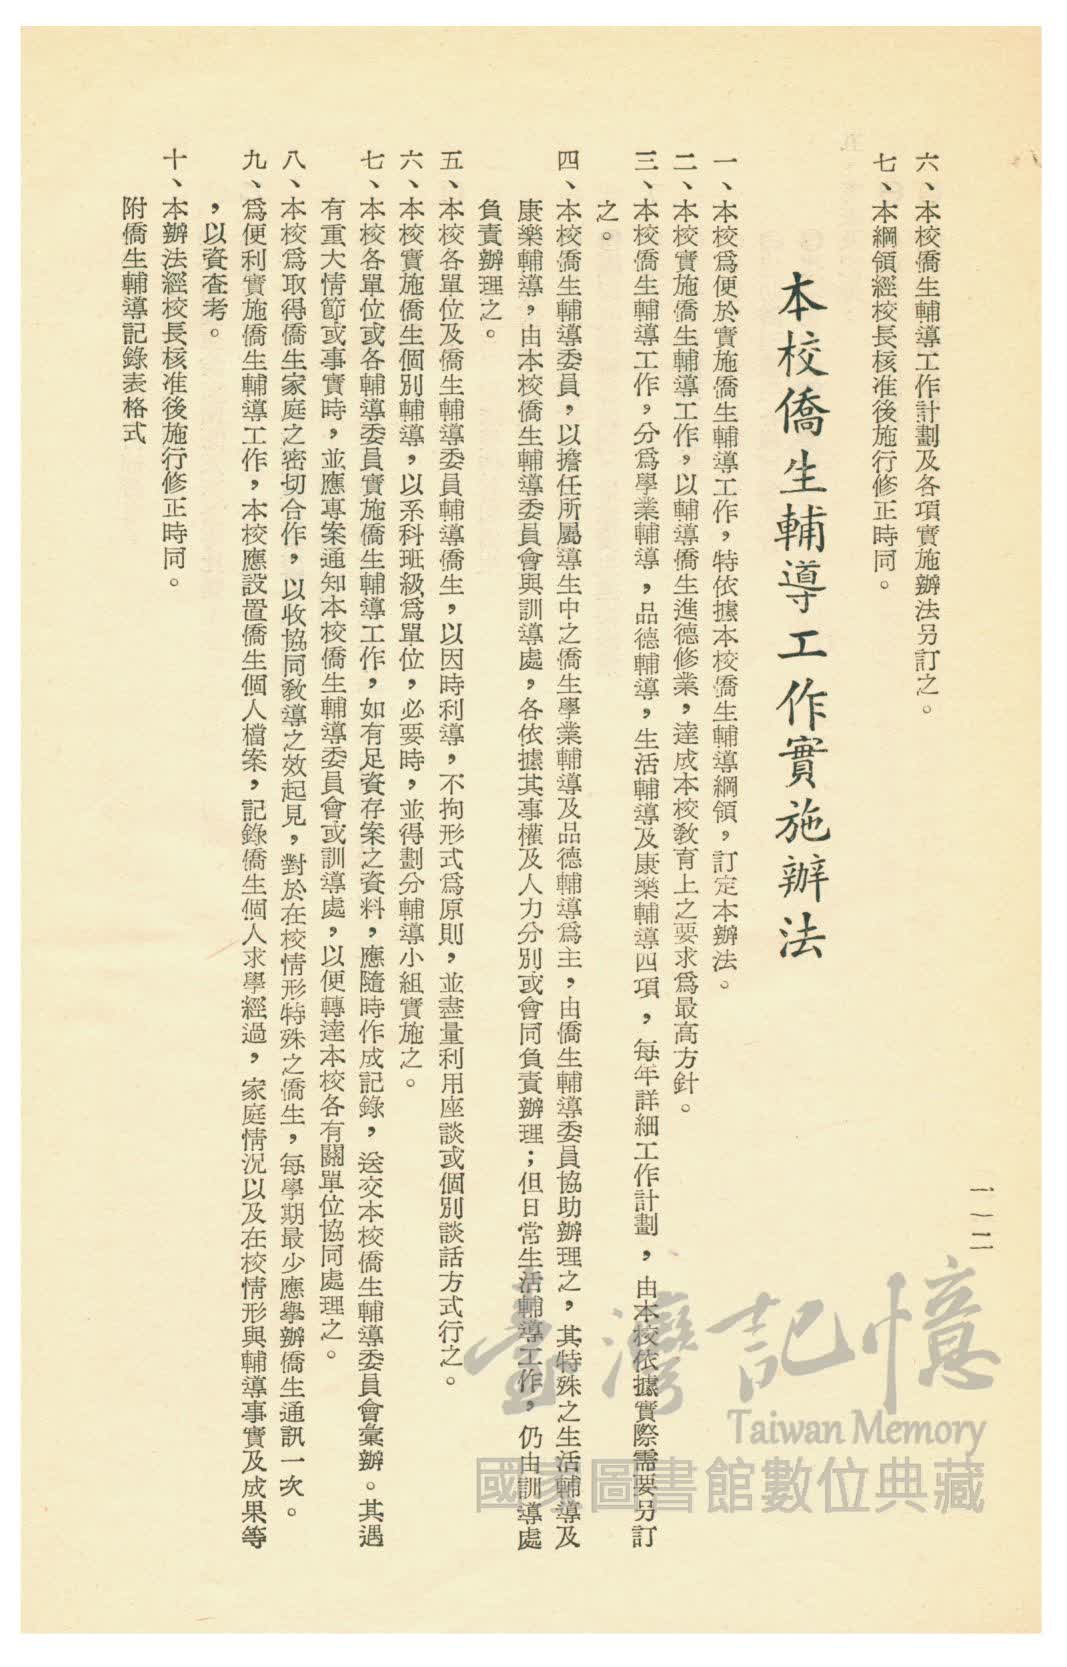 一—二
六、本校僑生輔導工作計劃及各項實施辦法另訂之。
七、本綱領經校長核准後施行修正時同。
本校僑生輔導工作實施辦法
一、本校爲便於實施僑生輔導工作，特依據本校僑生輔導綱領，訂定本辦法。
二、本校實施僑生輔導工作，以輔導僑生進德修業，達成本校敎育上之要求爲最高方針。
三、本校僑生輔導工作，分爲學業輔導，品德輔導，生活輔導及康樂輔導四項，每年詳細工作計劃，由本校依據實際需要另訂
之。
四、本校僑生輔導委員，以擔任所屬導生中之僑生學業輔導及品德輔導爲主，由僑生輔導委員協助辦理之，其特殊之生活輔導及
康樂輔導，由本校僑生輔導委員會與訓導處，各依據其事權及人力分別或會同負責辦理；但日常生活輔導工作，仍由訓導處
負責辦理之。
五、本校各單位及僑生輔導委員輔導僑生，以因時利導，不拘形式爲原則，並盡量利用座談或個別談話方式行之。
六、本校實施僑生個別輔導，以系科班級爲單位，必要時，並得劃分輔導小組實施之。
七、本校各單位或各輔導委員實施僑生輔導工作，如有足資存案之資料，應隨時作成記錄，送交本校僑生輔導委員會彙辦。其遇
有重大情節或事實時，並應專案通知本校僑生輔導委員會或訓導處，以便轉達本校各有關單位協同處理之。
八、本校爲取得僑生家庭之密切合作，以收協同敎導之效起見，對於在校情形特殊之僑生，每學期最少應舉辦僑生通訊一次。
九、爲便利實施僑生輔導工作，本校應設置僑生個人檔案，記錄僑生個人求學經過，家庭情況以及在校情形與輔導事實及成果等
，以資查考。
十、本辦法經校長核准後施行修正時同。
附僑生輔導記錄表格式
臺灣記憶
Taiwan Memory
國家圖書館數位典藏